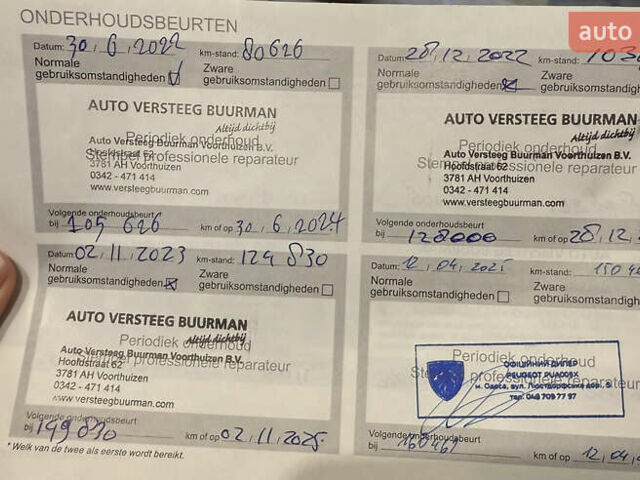 auto
ONDERHOUDSBEURTEN
Datum: 30.6.2022 km-stand: 80626
Normale gebruiksomstandigheden
Zware gebruiksomstandigheden
AUTO VERSTEEG BUURMAN
Altijd dichtbij
Periodiek onderhoud
Auto Versteeg Buurman Voorthuizen B.V.
Hoofdstraat 62
Stempel professionele reparateur
3781 AH Voorthuizen
0342 - 471 414
www.versteegbuurman.com
Volgende onderhoudsbeurt
bij 105 626 km of op 30.6.2024
Datum: 28.12.2022 km-stand:
Normale gebruiksomstandigheden
Zware gebruiksomstandigheden
AUTO VERSTEEG BUURMAN
Altijd dichtbij
Periodiek onderhoud
Auto Versteeg Buurman Voorthuizen B.V.
Hoofdstraat 62
Stempel professionele reparateur
3781 AH Voorthuizen
0342 - 471 414
www.versteegbuurman.com
Volgende onderhoudsbeurt
bij 128000 km of op 28.12.
Datum: 02.11.2023 km-stand: 124 830
Normale gebruiksomstandigheden
Zware gebruiksomstandigheden
AUTO VERSTEEG BUURMAN
Altijd dichtbij
Periodiek onderhoud
Auto Versteeg Buurman Voorthuizen B.V.
Hoofdstraat 62
Stempel professionele reparateur
3781 AH Voorthuizen
0342 - 471 414
www.versteegbuurman.com
Volgende onderhoudsbeurt
bij 149830 km of op 02.11.2025
Datum: 12.04.2025 km-stand:
Normale gebruiksomstandigheden
Zware gebruiksomstandigheden
Periodiek onderhoud
Stempel professionele reparateur
ОФІЦІЙНИЙ ДИЛЕР
PEUGEOT
м. Одеса, вул.
тел. 048 709 77 97
Volgende onderhoudsbeurt
bij 160461 km of op 12.04.
* Welk van de twee als eerste wordt bereikt.